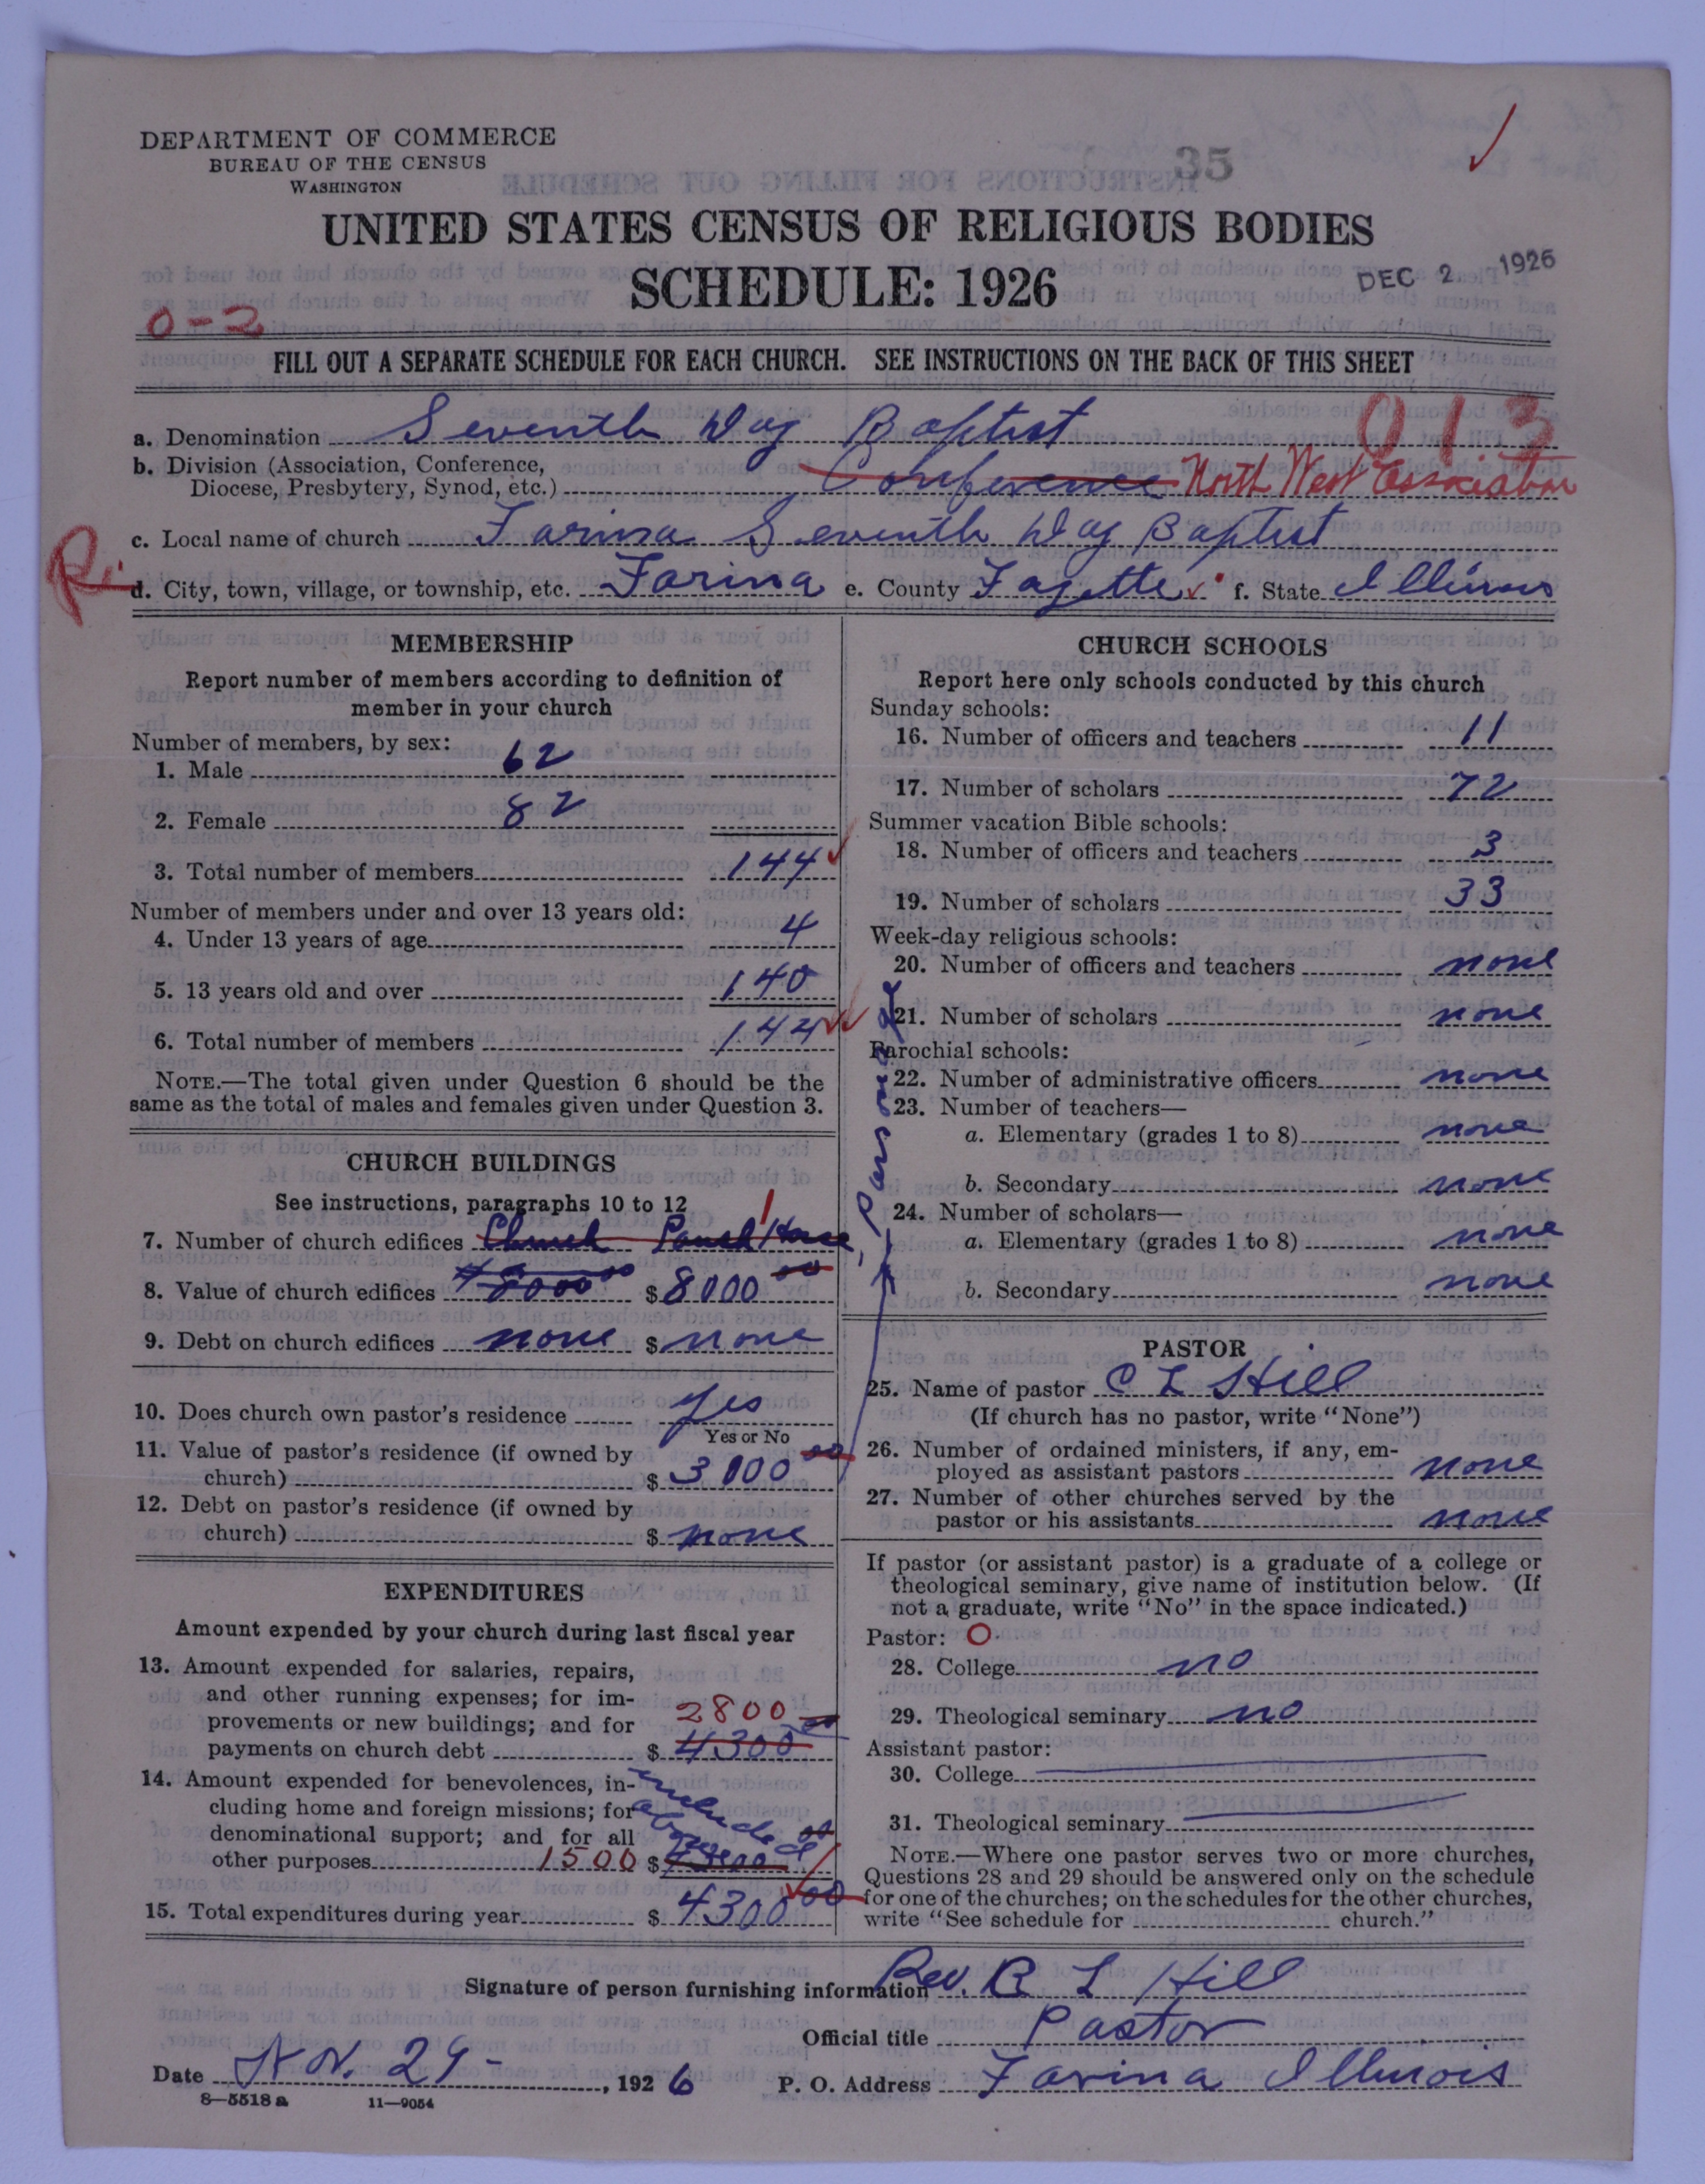 DEPARTMENT OF COMMERCE
BUREAU OF THE CENSUS
WASHINGTON
35
UNITED STATES CENSUS OF RELIGIOUS BODIES
SCHEDULE: 1926
DEC 2 1926
0-2
FILL OUT A SEPARATE SCHEDULE FOR EACH CHURCH. SEE INSTRUCTIONS ON THE BACK OF THIS SHEET
013
a. Denomination Seventh Day Baptist
b. Division (Association, Conference,
Diocese, Presbytery, Synod, etc.) Conference North West Association
c. Local name of church Farina Seventh Day Baptist
d. City, town, village, or township, etc. Farina e. County Fayette f. State Illinois
MEMBERSHIP
Report number of members according to definition of
member in your church
Number of members, by sex:
1. Male 62
2. Female 82
3. Total number of members 144
Number of members under and over 13 years old:
4. Under 13 years of age 4
5. 13 years old and over 140
6. Total number of members 144
NOTE.—The total given under Question 6 should be the
same as the total of males and females given under Question 3.
CHURCH BUILDINGS
See instructions, paragraphs 10 to 12
1
7. Number of church edifices Church House
8. Value of church edifices $8000 $8000 00
9. Debt on church edifices none $ none
10. Does church own pastor's residence yes
Yes or No
11. Value of pastor's residence (if owned by
church) $ 3000 00
Parsonage
12. Debt on pastor's residence (if owned by
church) $ none
EXPENDITURES
Amount expended by your church during last fiscal year
13. Amount expended for salaries, repairs,
and other running expenses; for im-
provements or new buildings; and for 2800
payments on church debt $ 4300
14. Amount expended for benevolences, in-
cluding home and foreign missions; for included
denominational support; and for all above
other purposes 1500 $
15. Total expenditures during year $ 4300 00
CHURCH SCHOOLS
Report here only schools conducted by this church
Sunday schools:
16. Number of officers and teachers 11
17. Number of scholars 72
Summer vacation Bible schools:
18. Number of officers and teachers 3
19. Number of scholars 33
Week-day religious schools:
20. Number of officers and teachers none
21. Number of scholars none
Parochial schools:
22. Number of administrative officers none
23. Number of teachers—
a. Elementary (grades 1 to 8) none
b. Secondary none
24. Number of scholars—
a. Elementary (grades 1 to 8) none
b. Secondary none
PASTOR
25. Name of pastor C L Hill
(If church has no pastor, write "None")
26. Number of ordained ministers, if any, em-
ployed as assistant pastors none
27. Number of other churches served by the
pastor or his assistants none
If pastor (or assistant pastor) is a graduate of a college or
theological seminary, give name of institution below. (If
not a graduate, write "No" in the space indicated.)
Pastor: 0
28. College no
29. Theological seminary no
Assistant pastor:
30. College
31. Theological seminary
NOTE.—Where one pastor serves two or more churches,
Questions 28 and 29 should be answered only on the schedule
for one of the churches; on the schedules for the other churches,
write "See schedule for church."
Signature of person furnishing information Rev. C L Hill
Official title Pastor
Date Nov. 29 - , 1926 P. O. Address Farina Illinois
8—5518 a 11—9054